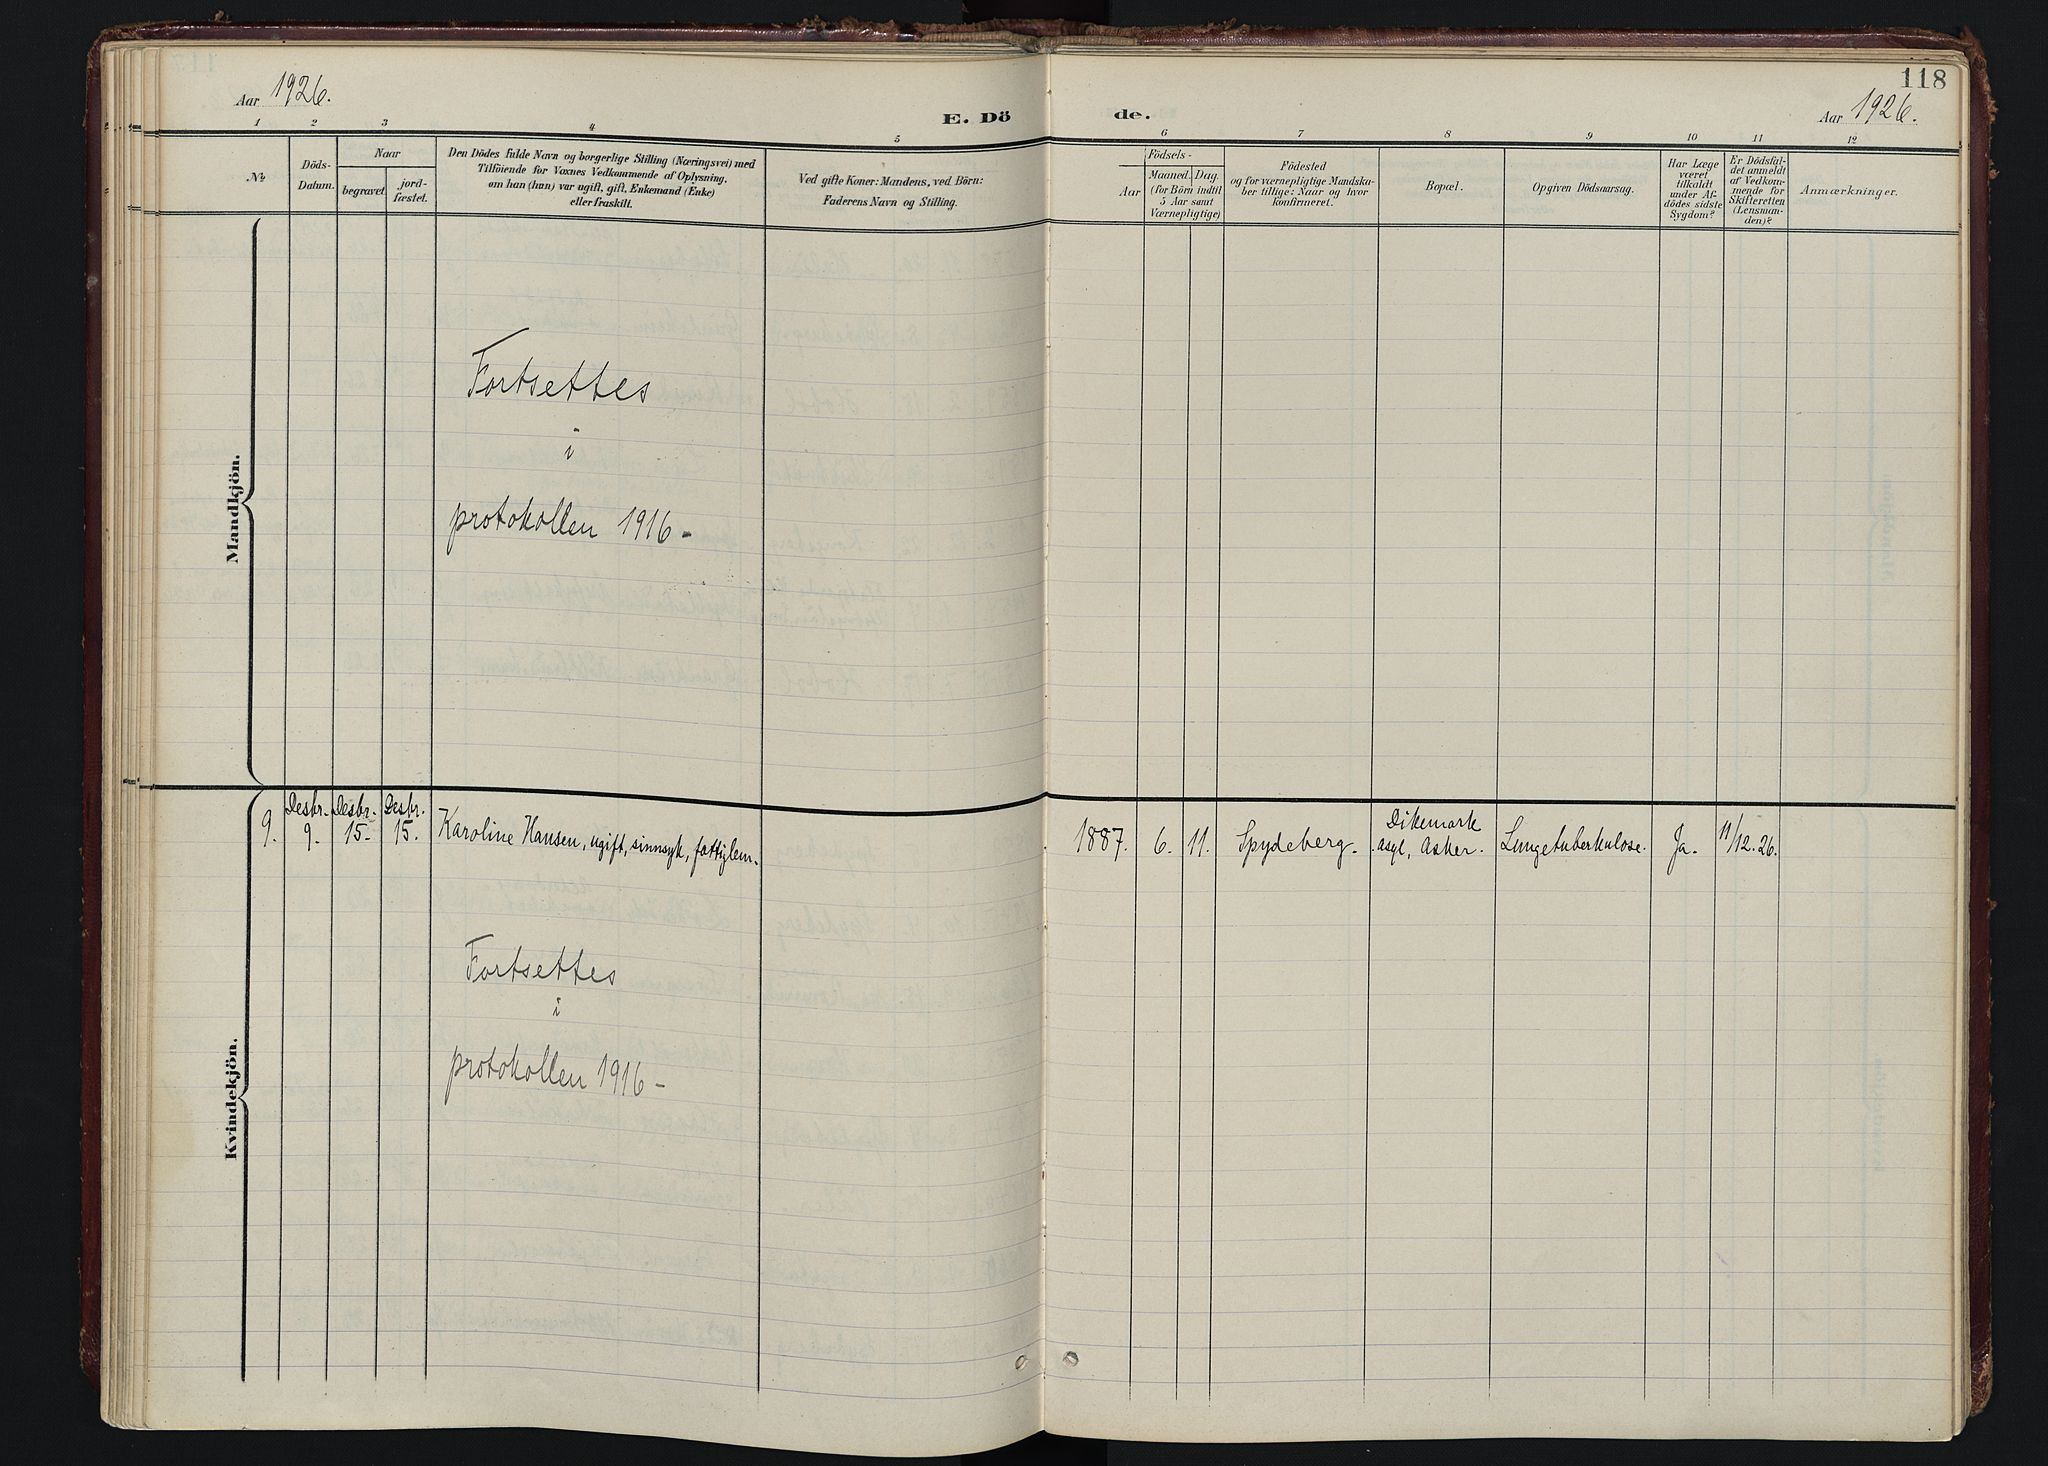 118
Aar 1926.
E. Dö
de.
Aar 1926.
1 2 3 4 5 6 7 8 9 10 11 12
No
Döds-
Datum.
Naar
begravet
jord-
fæstet.
Den Dödes fulde Navn og borgerlige Stilling (Næringsvei) med
Tilföiende for Voxnes Vedkommende af Oplysning,
om han (hun) var ugift, gift, Enkemand (Enke)
eller fraskilt.
Ved gifte Koner: Mandens, ved Börn:
Faderens Navn og Stilling.
Födsels-
Aar
Maaned. Dag.
(for Börn indtil
5 Aar samt
Værnepligtige)
Födested
og for værnepligtige Mandska-
ber tillige: Naar og hvor
konfirmeret.
Bopæl.
Opgiven Dödsaarsag.
Har Læge
været
tilkaldt
under Af-
dödes sidste
Sygdom?
Er Dödsfal-
det anmeldt
af Vedkom-
mende for
Skifteretten
(Lensman-
den)?
Anmærkninger.
Mandkjön.
Fortsettes
i
protokollen 1916 -
Kvindekjön.
Desbr. Desbr. Desbr.
9. 9. 15. 15. Karoline Hansen, ugift, sinnsyk, fattiglem. 1887. 6. 11. Spydeberg. Dikemark
asyl, Asker. Lungetuberkulose. Ja. 11/12. 26.
Fortsettes
i
protokollen 1916 -